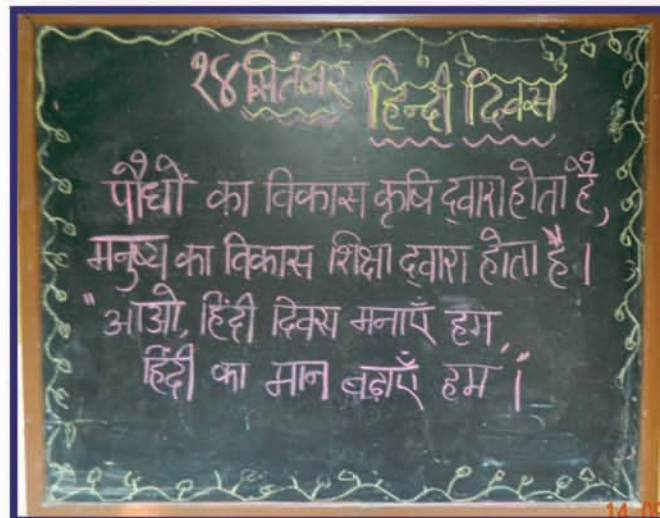 १४ सितंबर हिन्दी दिवस
पौधों का विकास कृषि द्वारा होता है,
मनुष्य का विकास शिक्षा द्वारा होता है।
"आओ, हिंदी दिवस मनाएँ हम,
हिंदी का मान बढ़ाएँ हम।"
14 09